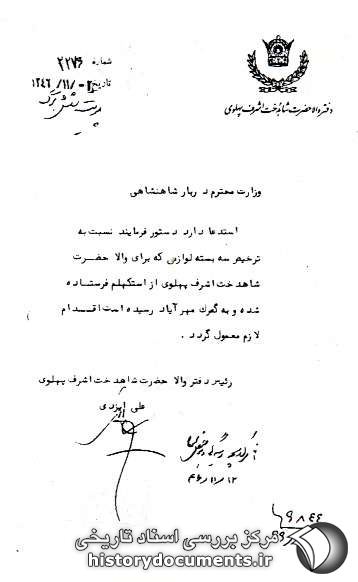 دفتر والاحضرت شاهدخت اشرف پهلوی
شماره ۲۲۷۶
تاریخ ۱۳۴۶/۱۱/۰۲
پیوست
وزارت محترم دربار شاهنشاهی
استدعا دارد دستور فرمایند نسبت به
ترخیص سه بسته لوازمی که برای والا حضرت
شاهدخت اشرف پهلوی از استکهلم فرستاده
شده و به گمرك مهرآباد رسیده است اقدام
لازم معمول گردد .
رئیس دفتر والا حضرت شاهدخت اشرف پهلوی
علی ایزدی
۴۶/۱۱/۱۲
مرکز بررسی اسناد تاریخی
historydocuments.ir